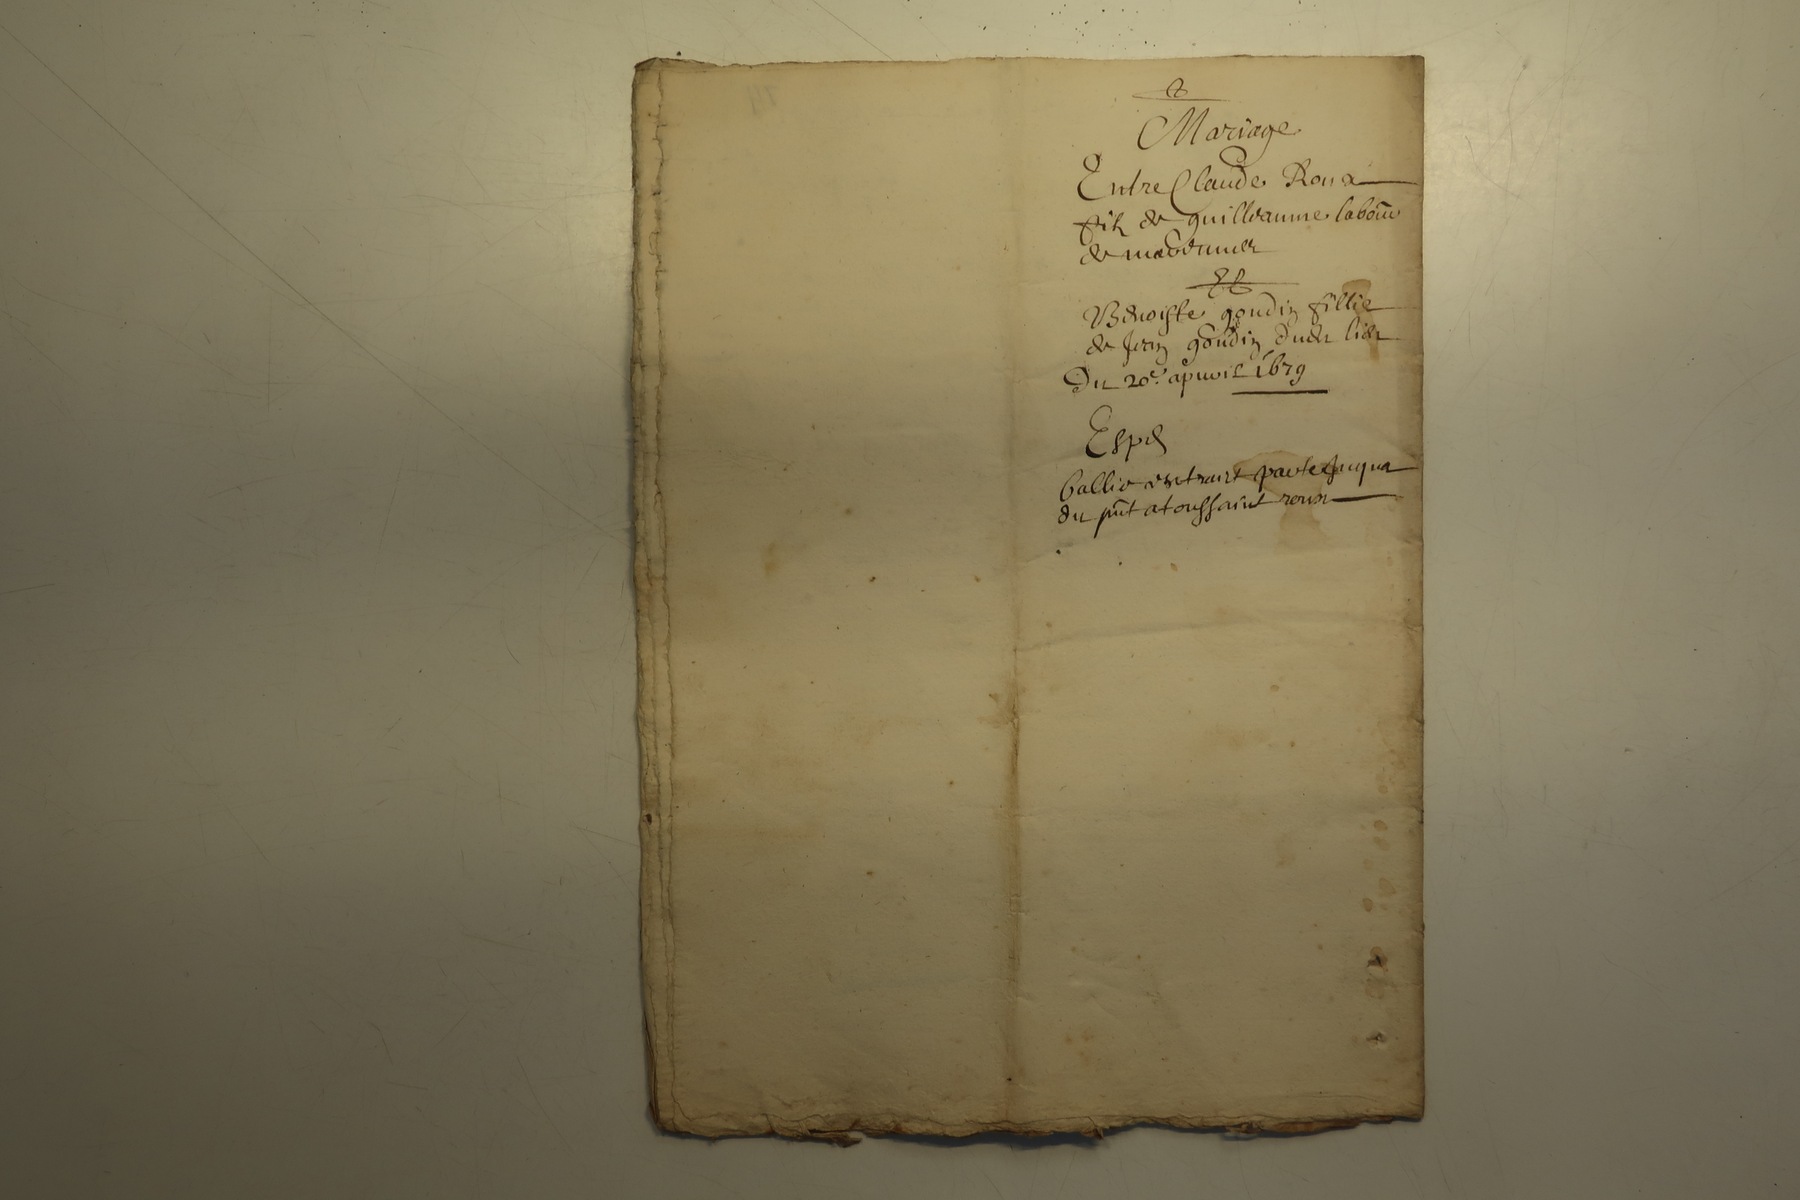 Mariage
Entre Claude Roux
filz de guilleaume labou
de
Et
Benoiste goudin fillie
de Jean goudin dudit lieu
Du 20e. apvril 1679
Exped
ballie extraict parte Jn qua
du pnt a toussaint roux